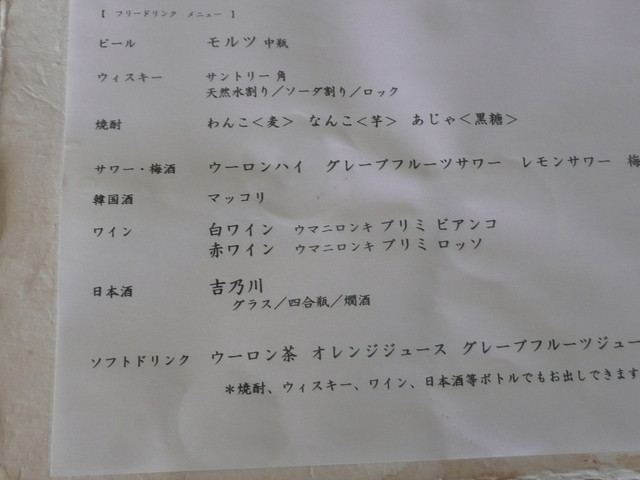 【 フリードリンク メニュー 】
ビール モルツ 中瓶
ウィスキー サントリー 角
天然水割り／ソーダ割り／ロック
焼酎 わんこ＜麦＞ なんこ＜芋＞ あじゃ＜黒糖＞
サワー・梅酒 ウーロンハイ グレープフルーツサワー レモンサワー 梅
韓国酒 マッコリ
ワイン 白ワイン ウマニロンキ プリミ ビアンコ
赤ワイン ウマニロンキ プリミ ロッソ
日本酒 吉乃川
グラス／四合瓶／燗酒
ソフトドリンク ウーロン茶 オレンジジュース グレープフルーツジュー
＊焼酎、ウィスキー、ワイン、日本酒等ボトルでもお出しできます